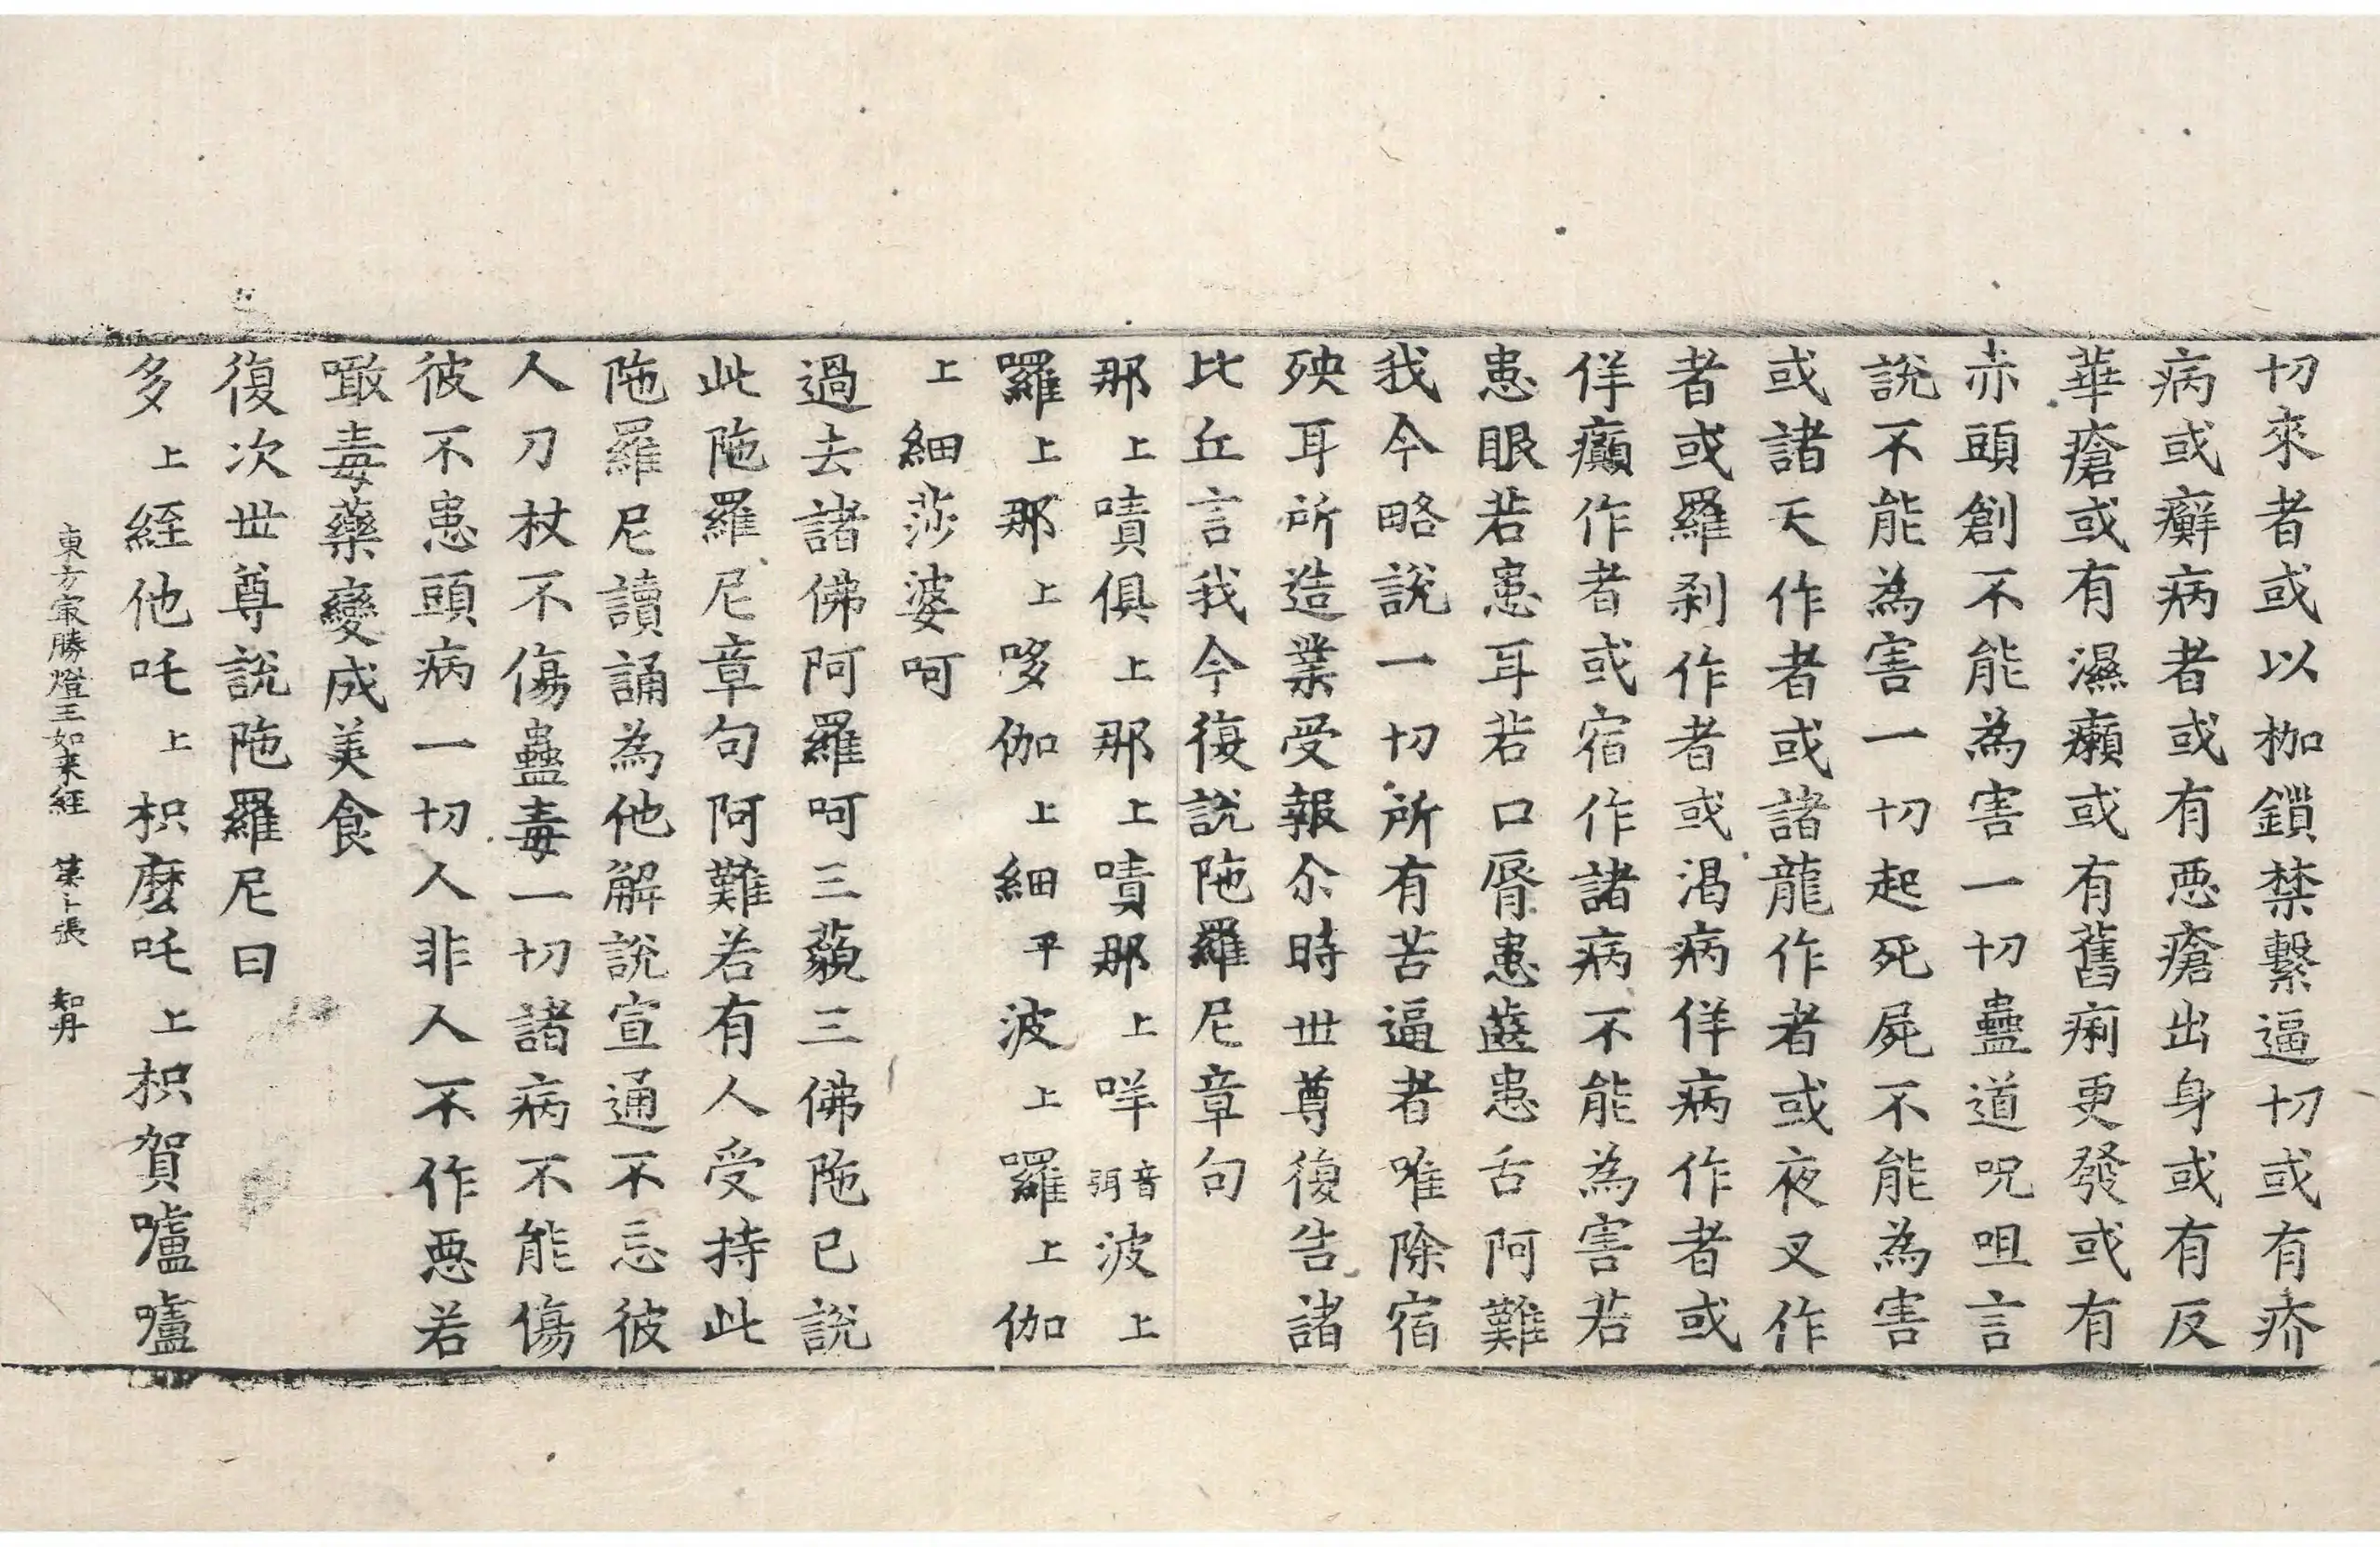 切來者或以枷鎖禁繫逼切或有疥
病或癬病者或有惡瘡出身或有反
華瘡或有濕癩或有舊痢更發或有
赤頭創不能為害一切蠱道呪咀言
說不能為害一切起死屍不能為害
或諸天作者或諸龍作者或夜叉作
者或羅剎作者或渴病佯病作者或
佯癲作者或宿作諸病不能為害若
患眼若患耳若口脣患齒患舌阿難
我今略說一切所有苦逼者唯除宿
殃耳所造業受報尒時世尊復告諸
比丘言我今復說陁羅尼章句
那上嘖俱上那上嘖那上哶音弭波上
囉上那上哆伽上細平波上囉上伽
上細莎婆呵
過去諸佛阿羅呵三藐三佛陁已說
此陁羅尼章句阿難若有人受持此
陁羅尼讀誦為他解說宣通不忘彼
人刀杖不傷蠱毒一切諸病不能傷
彼不患頭病一切人非人不作惡若
噉毒藥變成美食
復次世尊說陁羅尼曰
多上絰他吒上枳麼吒上枳賀嚧嚧
東方寂勝燈王如来経 第十張 知丹